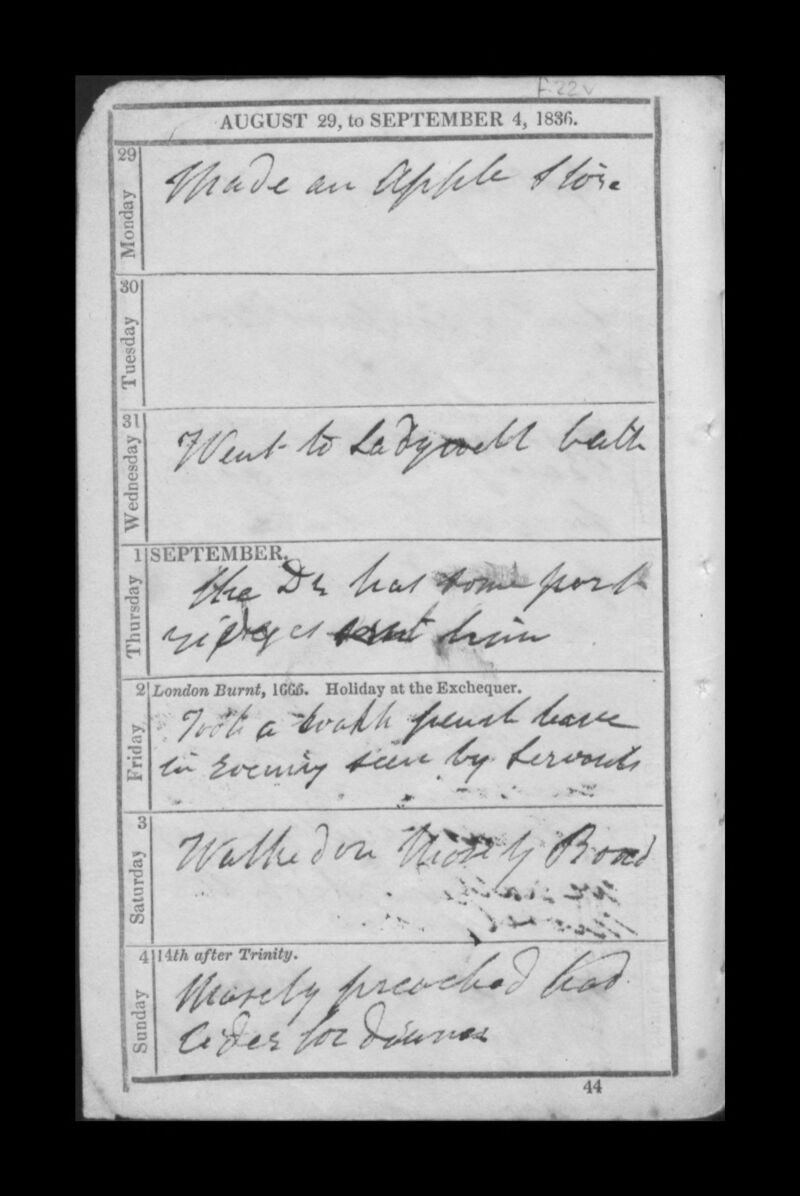 F.22v
AUGUST 29, to SEPTEMBER 4, 1836.
29 Monday
Made an Apple Store
30 Tuesday
31 Wednesday
Went to Ladywell bath
1 Thursday
SEPTEMBER.
the Dr has some part
ridges sent him
2 Friday
London Burnt, 1666. Holiday at the Exchequer.
Took a walk
in Evening seen by Servants
3 Saturday
Walked on Mosely Road
4 Sunday
14th after Trinity.
Mosely preached had
Cider for dinner
44